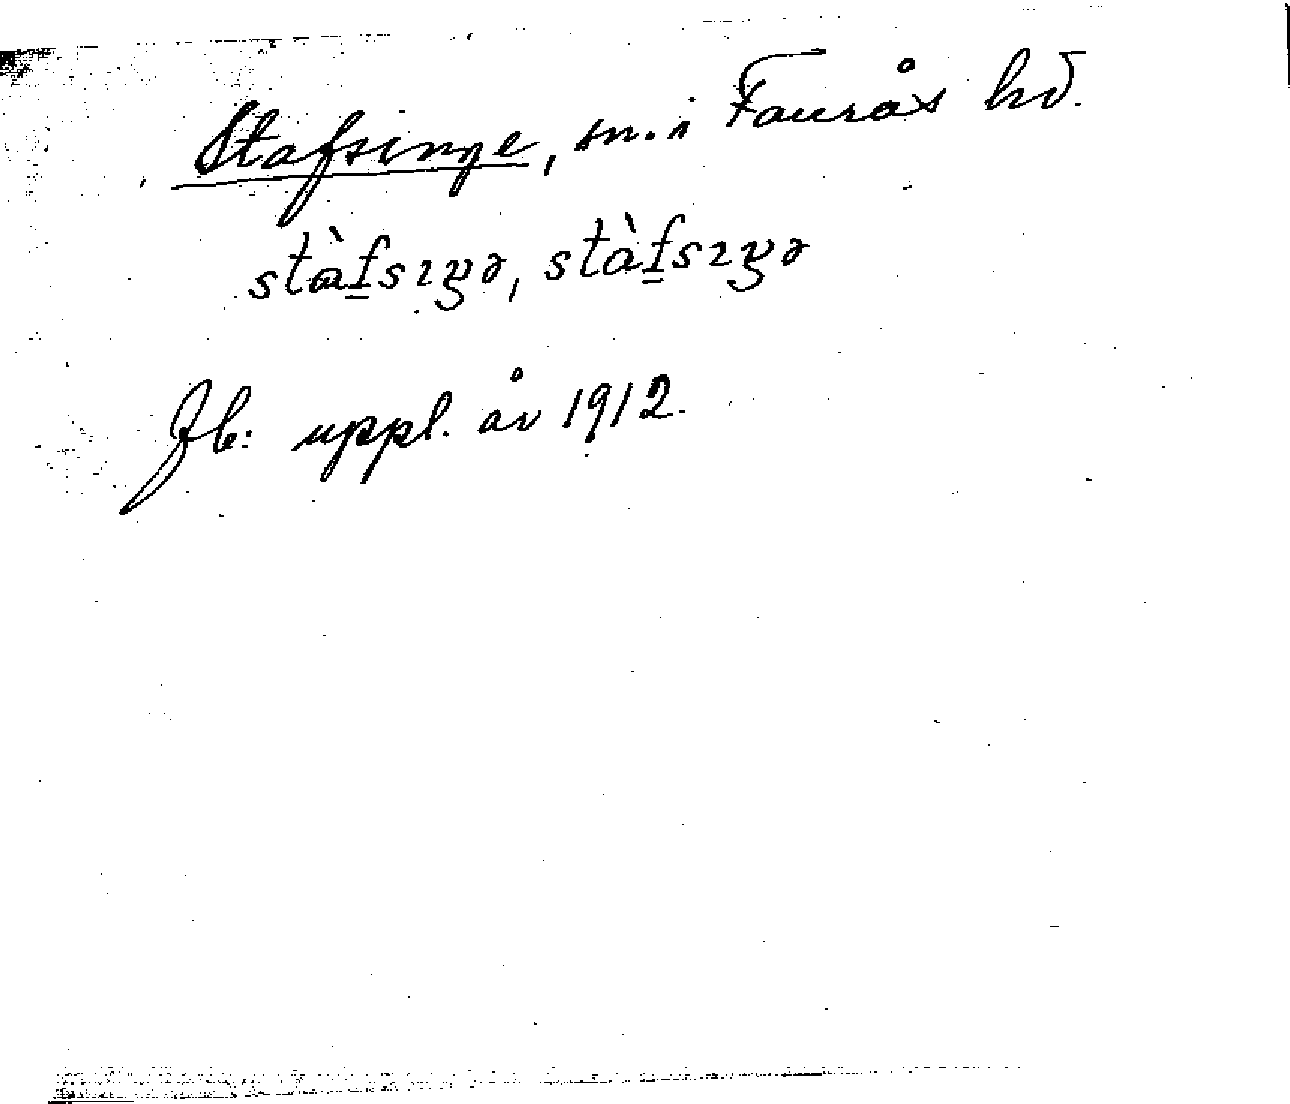 Stafsinge, sn. i Faurås hd.
stàf̲sıŋə, stàf̲sıŋə
Jb: uppl. år 1912.